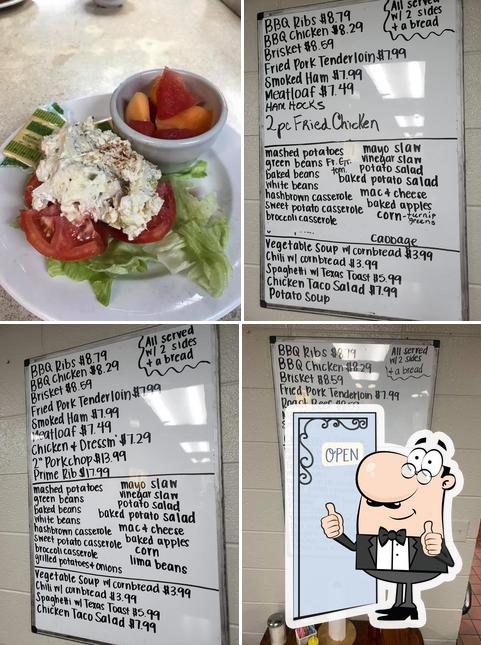 BBQ Ribs $8.79
BBQ Chicken $8.29
Brisket $8.59
Fried Pork Tenderloin $7.99
Smoked Ham $7.99
Meatloaf $7.49
HAM HOCKS
2pc Fried Chicken
All served
w/ 2 sides
+ a bread
mashed potatoes
green beans Fr. Grn. tom.
baked beans
white beans
hashbrown casserole
sweet potato casserole
broccoli casserole
mayo slaw
vinegar slaw
potato salad
baked potato salad
mac & cheese
baked apples
corn - turnip greens
cabbage
Vegetable Soup w/ cornbread $3.99
Chili w/ cornbread $3.99
Spaghetti w/ Texas Toast $5.99
Chicken Taco Salad $7.99
Potato Soup
BBQ Ribs $8.79
BBQ Chicken $8.29
Brisket $8.59
Fried Pork Tenderloin $7.99
Smoked Ham $7.99
Meatloaf $7.49
Chicken & Dressin' $7.29
2" Porkchop $13.99
Prime Rib $17.99
All served
w/ 2 sides
+ a bread
mashed potatoes
green beans
baked beans
white beans
hashbrown casserole
sweet potato casserole
broccoli casserole
grilled potatoes + onions
mayo slaw
vinegar slaw
potato salad
baked potato salad
mac & cheese
baked apples
corn
lima beans
Vegetable Soup w/ cornbread $3.99
Chili w/ cornbread $3.99
Spaghetti w/ Texas Toast $5.99
Chicken Taco Salad $7.99
BBQ Ribs $8.79
BBQ Chicken $8.29
Brisket $8.59
Fried Pork Tenderloin $7.99
All served
w/ 2 sides
+ a bread
OPEN